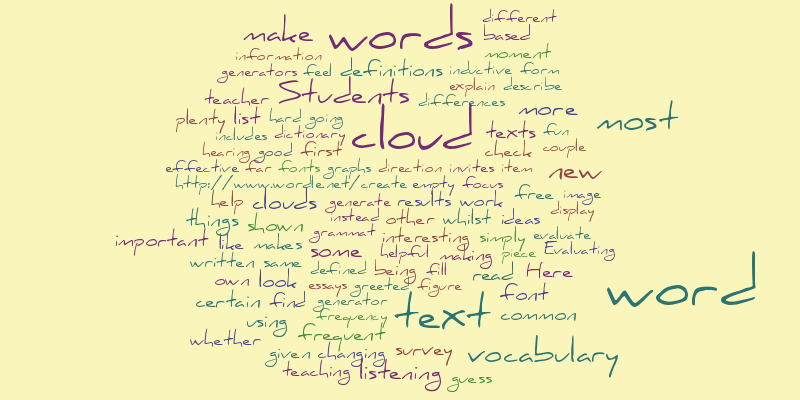 different
make words based
information moment
generators feel definitions inductive form
explain describe
teacher Students differences
more
plenty list hard going most
cloud texts fun
includes dictionary
hearing good first check couple
effective far fonts graphs direction invites item new
http://www.wordle.net/create empty focus
help clouds generate results work free image
display
things shown instead other whilst ideas
grammat interesting simply evaluate
important like makes some helpful making piece Evaluating
written same defined being fill read Here
own look essays greeted figure
certain find generator text font word
using frequency common
whether frequent
given changing survey vocabulary
teaching listening guess